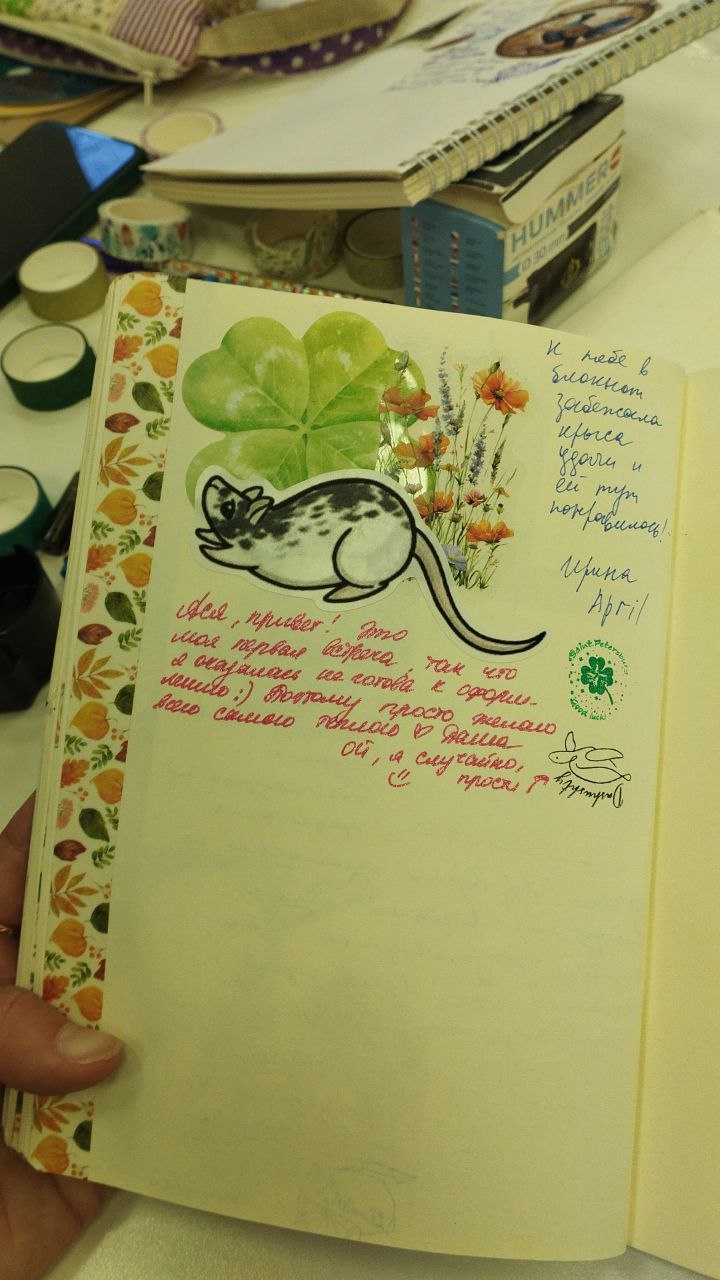 HUMMER
0.30 mm
К тебе в
блокнот
забежала
крыса
удачи и
ей тут
понравилось!
Ирина
April
Ася, привет! Это
моя первая встреча, так что
я оказалась не готова к оформ-
лению :) Поэтому просто желаю
всего самого теплого ♡ Даша
ой, я случайно,
прости ↑
Saint Petersburg
Good luck!